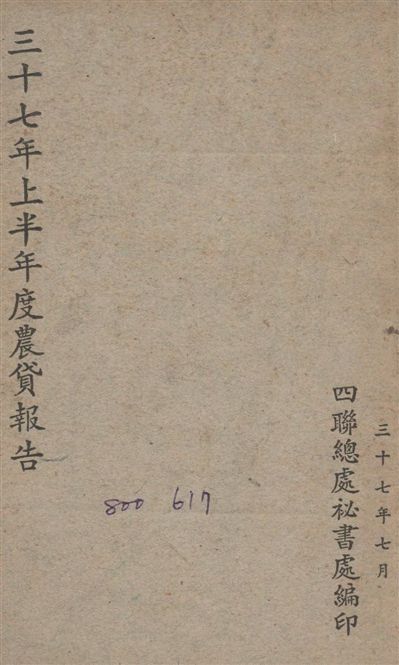 三十七年上半年度農貸報告
三十七年七月
四聯總處祕書處編印
800 617